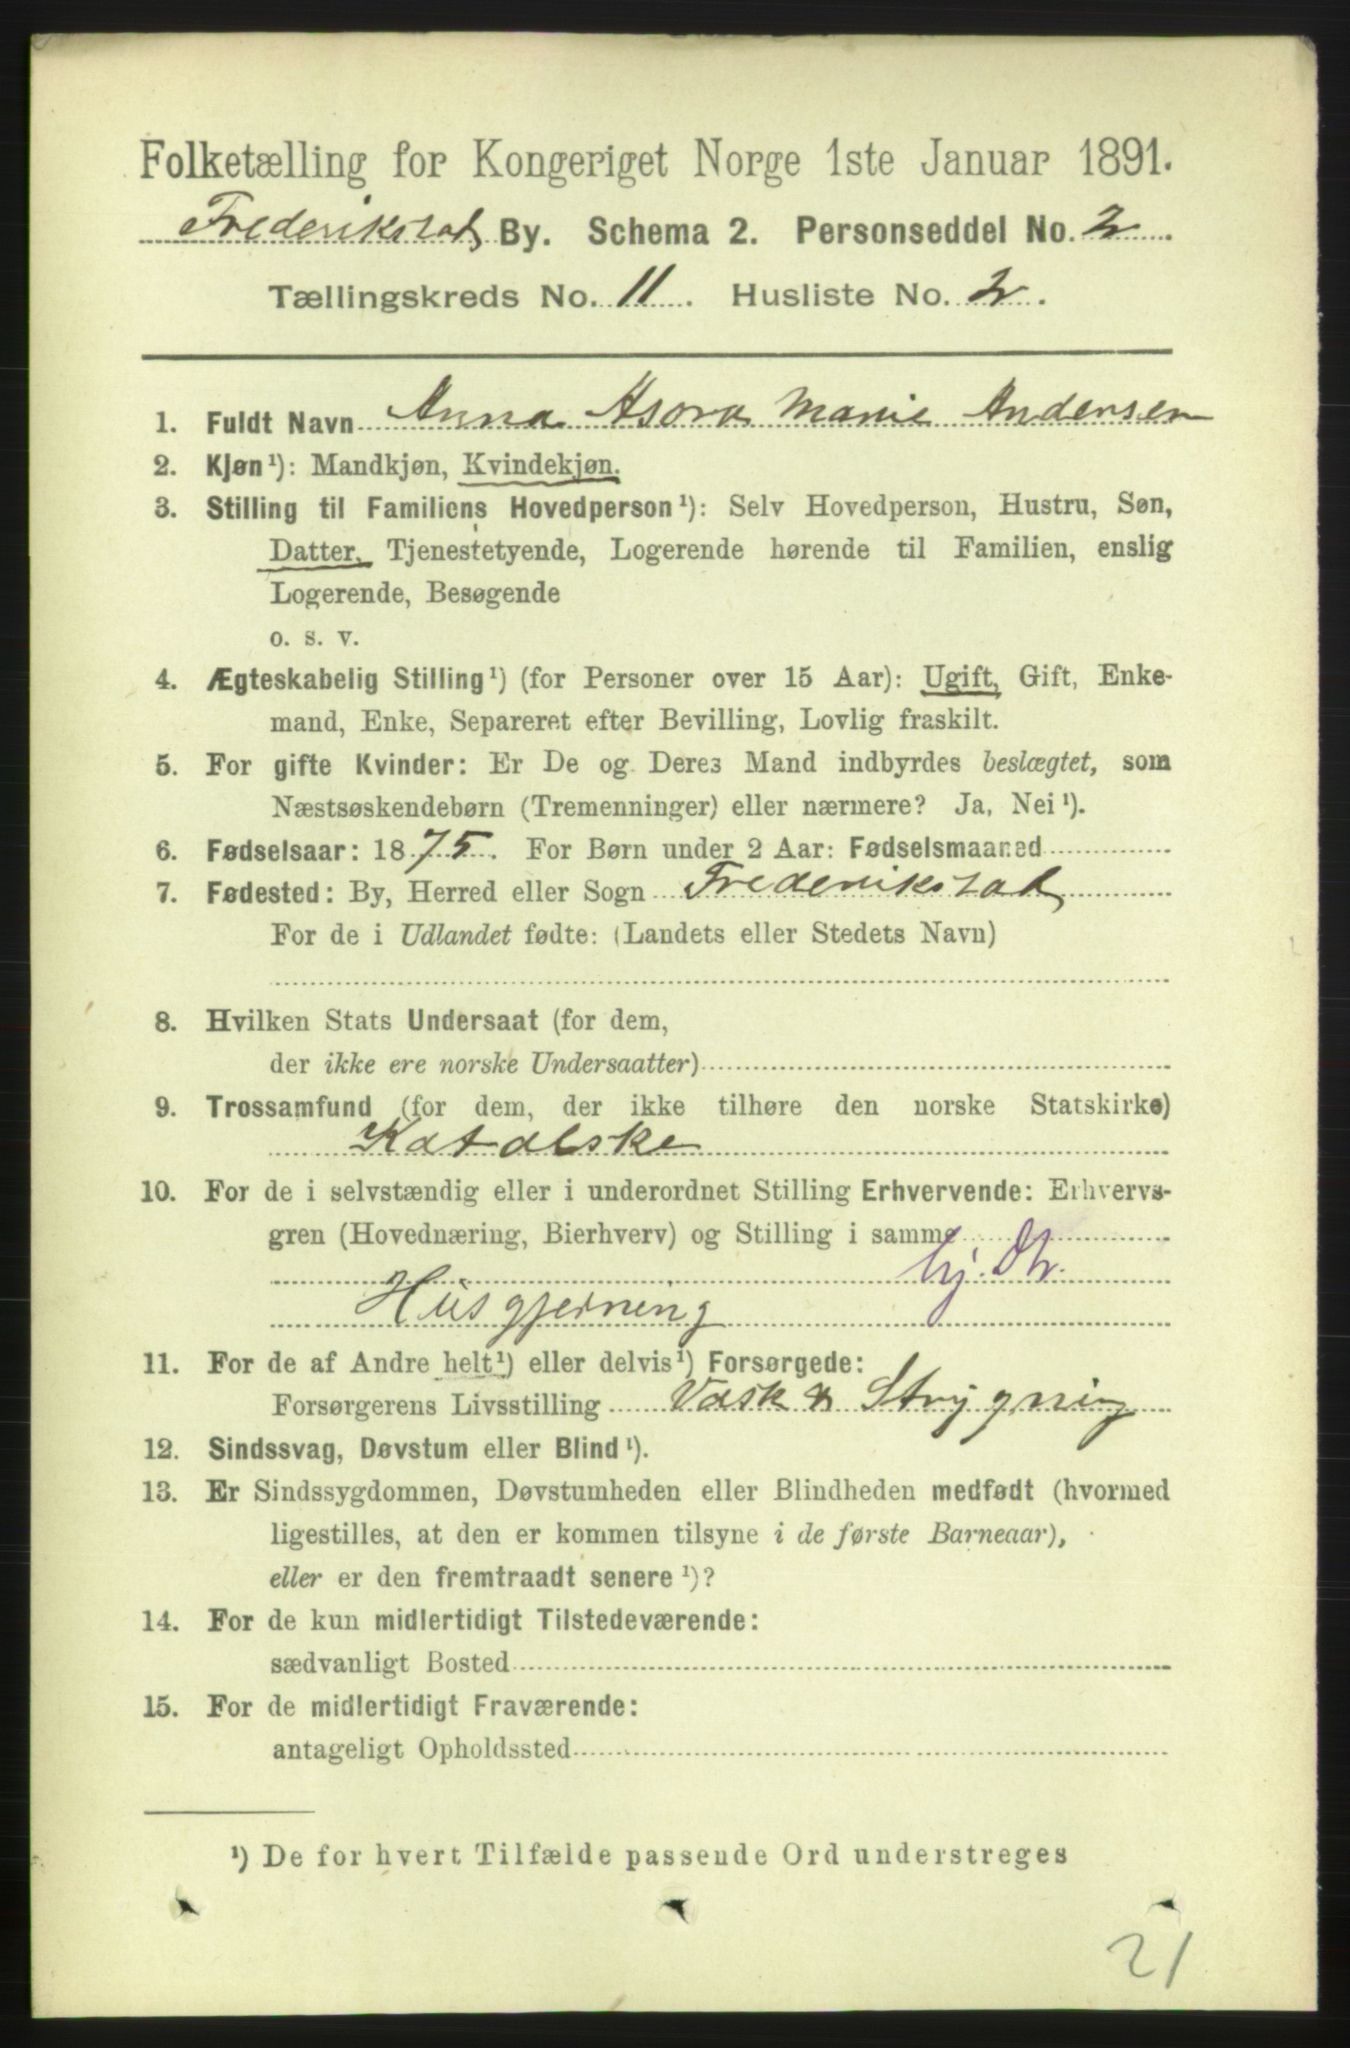 Folketælling for Kongeriget Norge 1ste Januar 1891.
Frederikstad By. Schema 2. Personseddel No. 2
Tællingskreds No. 11. Husliste No. 2.
1. Fuldt Navn Anna Asora Marie Andersen
2. Kjøn¹): Mandkjøn, Kvindekjøn.
3. Stilling til Familiens Hovedperson¹): Selv Hovedperson, Hustru, Søn,
Datter, Tjenestetyende, Logerende hørende til Familien, enslig
Logerende, Besøgende
o. s. v.
4. Ægteskabelig Stilling¹) (for Personer over 15 Aar): Ugift, Gift, Enke-
mand, Enke, Separeret efter Bevilling, Lovlig fraskilt.
5. For gifte Kvinder: Er De og Deres Mand indbyrdes beslægtet, som
Næstsøskendebørn (Tremenninger) eller nærmere? Ja, Nei¹).
6. Fødselsaar: 1875. For Børn under 2 Aar: Fødselsmaaned
7. Fødested: By, Herred eller Sogn Frederikstad
For de i Udlandet fødte: (Landets eller Stedets Navn)
8. Hvilken Stats Undersaat (for dem,
der ikke ere norske Undersaatter)
9. Trossamfund (for dem, der ikke tilhøre den norske Statskirke)
Katolske
10. For de i selvstændig eller i underordnet Stilling Erhvervende: Erhvervs-
gren (Hovednæring, Bierhverv) og Stilling i samme
hj. Dt.
Husgjerning
11. For de af Andre helt¹) eller delvis¹) Forsørgede:
Forsørgerens Livsstilling Vask & Strygning
12. Sindssvag, Døvstum eller Blind¹).
13. Er Sindssygdommen, Døvstumheden eller Blindheden medfødt (hvormed
ligestilles, at den er kommen tilsyne i de første Barneaar),
eller er den fremtraadt senere¹)?
14. For de kun midlertidigt Tilstedeværende:
sædvanligt Bosted
15. For de midlertidigt Fraværende:
antageligt Opholdssted
¹) De for hvert Tilfælde passende Ord understreges
21